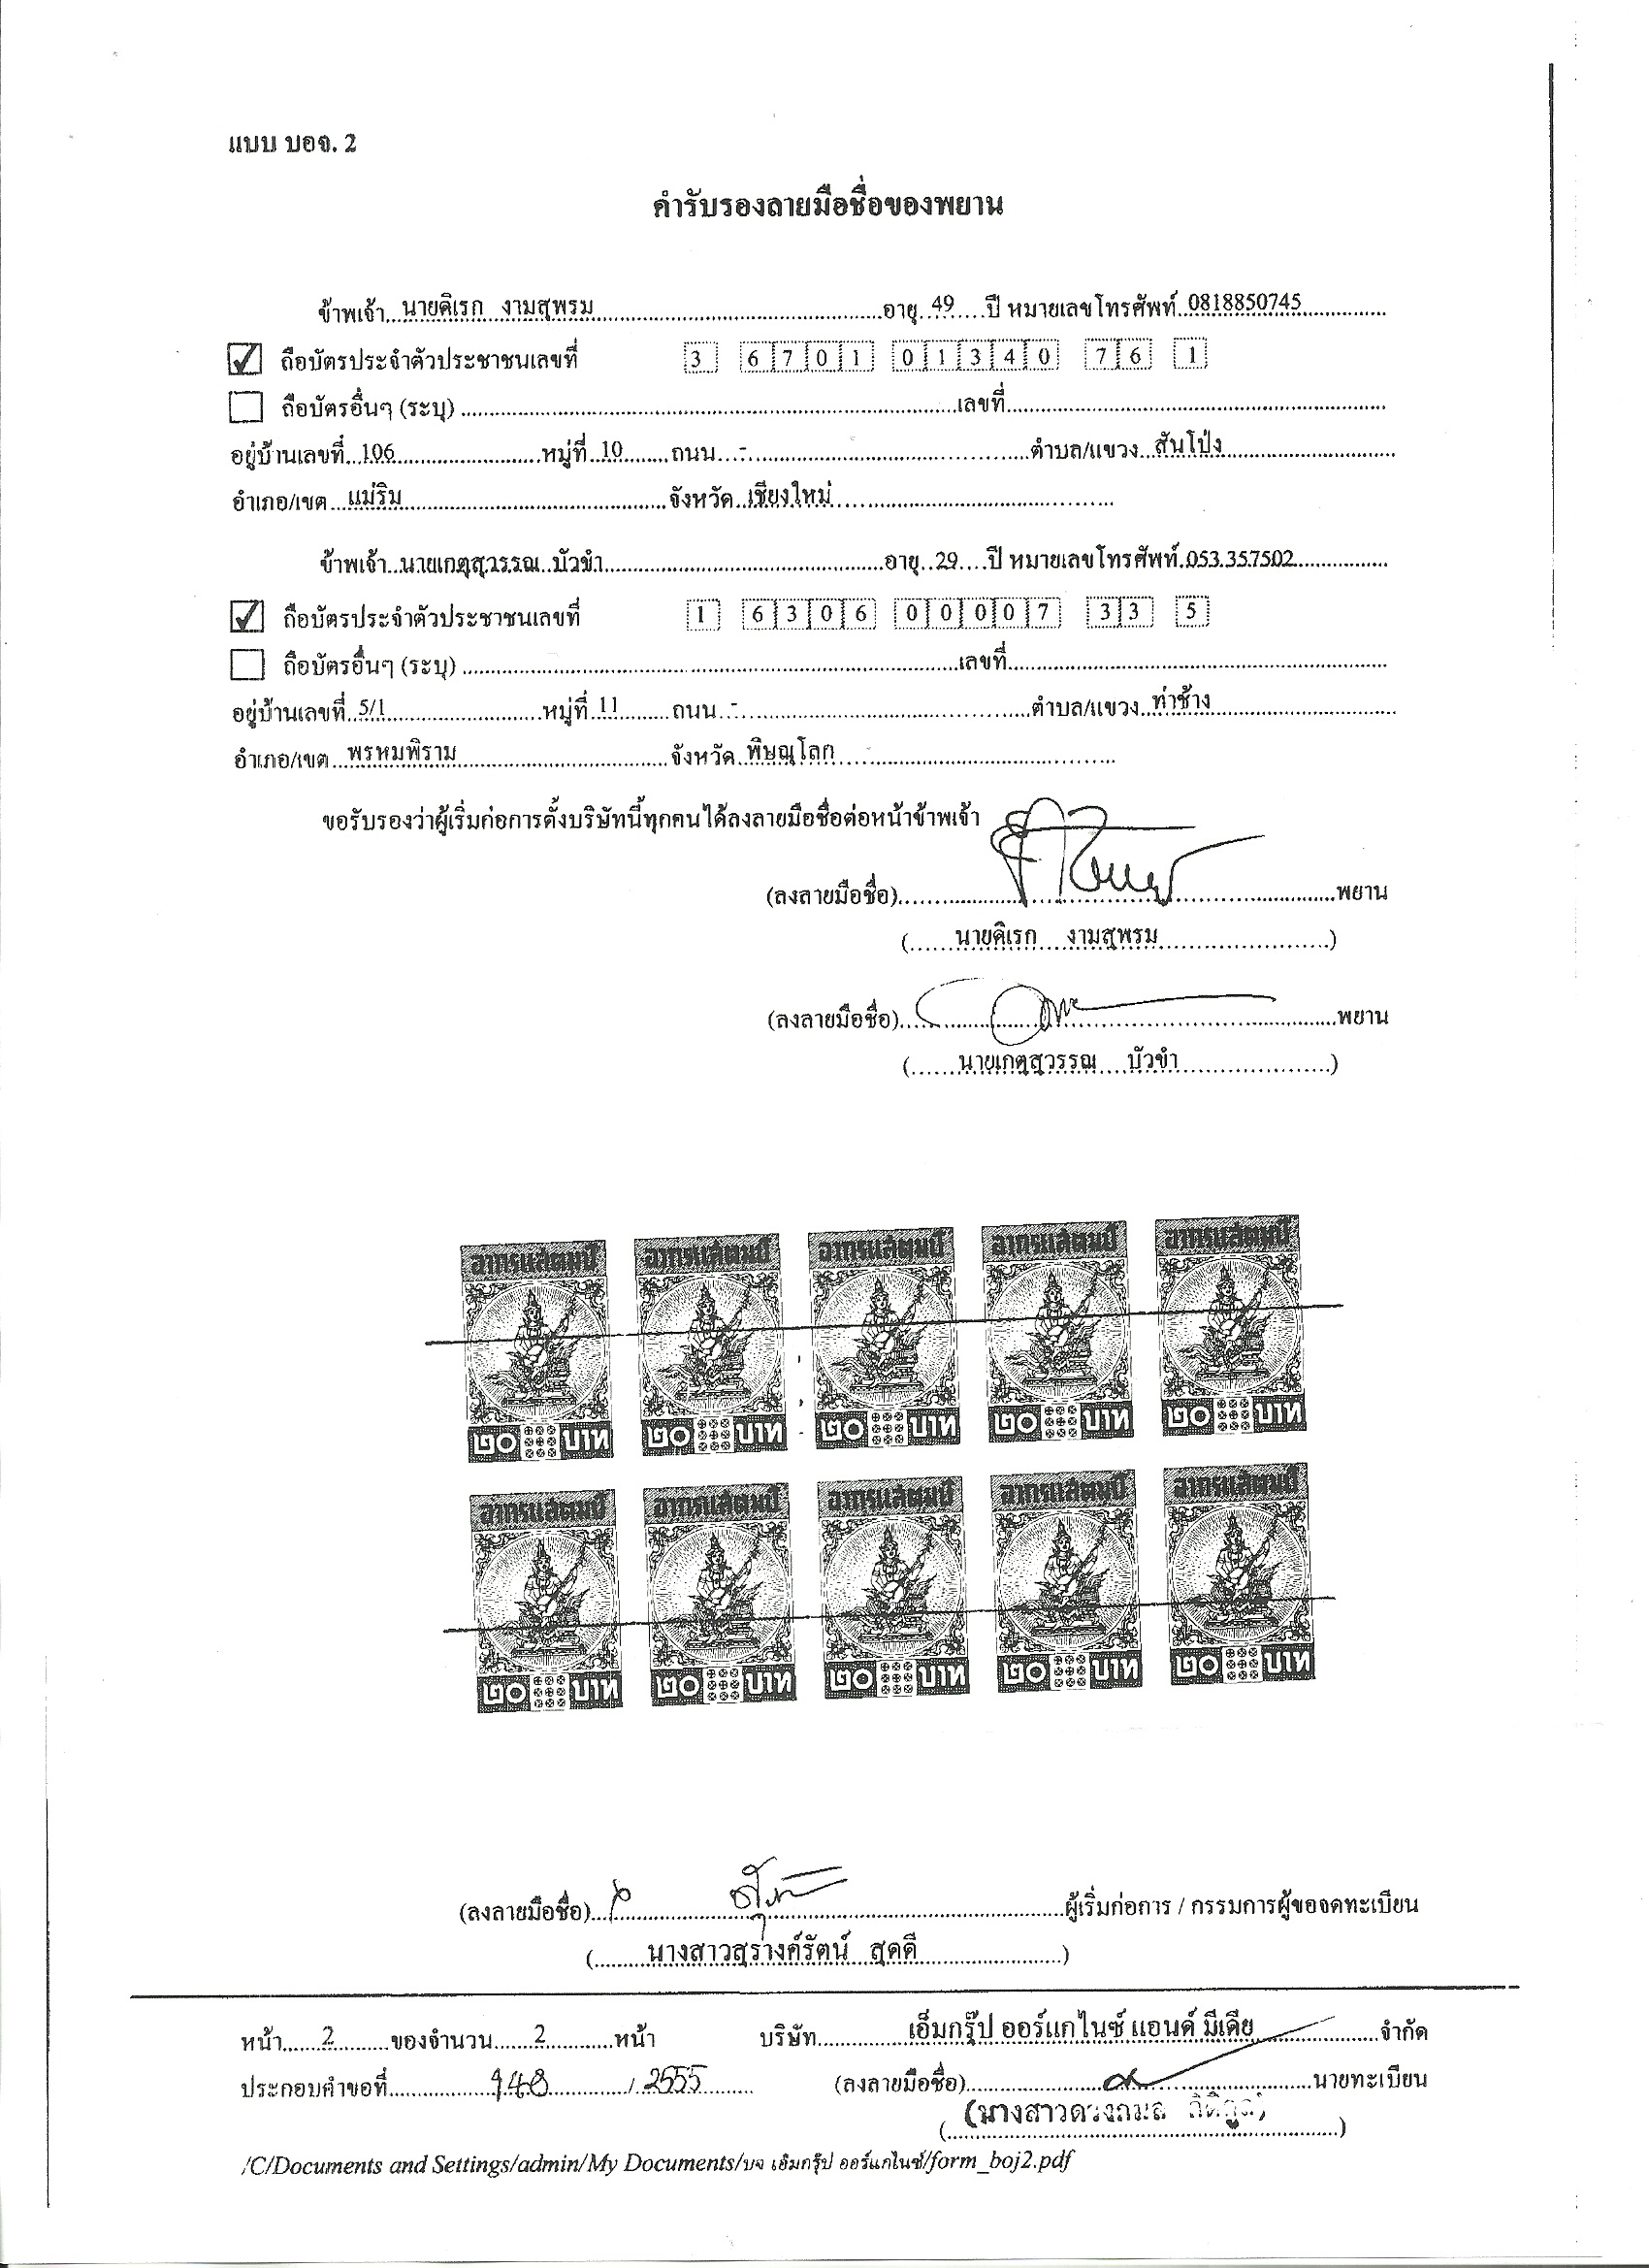 แบบ บอจ. 2
คำรับรองลายมือชื่อของพยาน
ข้าพเจ้า นายดิเรก งามสุพรม อายุ 49 ปี หมายเลขโทรศัพท์ 0818850745
ถือบัตรประจำตัวประชาชนเลขที่ 3 6701 01340 76 1
ถือบัตรอื่นๆ (ระบุ) เลขที่
อยู่บ้านเลขที่ 106 หมู่ที่ 10 ถนน - ตำบล/แขวง สันโป่ง
อำเภอ/เขต แม่ริม จังหวัด เชียงใหม่
ข้าพเจ้า นายเกตุสุวรรณ บัวขำ อายุ 29 ปี หมายเลขโทรศัพท์ 053 357502
ถือบัตรประจำตัวประชาชนเลขที่ 1 6306 00007 33 5
ถือบัตรอื่นๆ (ระบุ) เลขที่
อยู่บ้านเลขที่ 5/1 หมู่ที่ 11 ถนน - ตำบล/แขวง ท่าช้าง
อำเภอ/เขต พรหมพิราม จังหวัด พิษณุโลก
ขอรับรองว่าผู้เริ่มก่อการตั้งบริษัทนี้ทุกคนได้ลงลายมือชื่อต่อหน้าข้าพเจ้า
(ลงลายมือชื่อ) พยาน
( นายดิเรก งามสุพรม )
(ลงลายมือชื่อ) พยาน
( นายเกตุสุวรรณ บัวขำ )
อากรแสตมป์ อากรแสตมป์ อากรแสตมป์ อากรแสตมป์ อากรแสตมป์
๒๐ บาท ๒๐ บาท ๒๐ บาท ๒๐ บาท ๒๐ บาท
อากรแสตมป์ อากรแสตมป์ อากรแสตมป์ อากรแสตมป์ อากรแสตมป์
๒๐ บาท ๒๐ บาท ๒๐ บาท ๒๐ บาท ๒๐ บาท
(ลงลายมือชื่อ) ผู้เริ่มก่อการ / กรรมการผู้ขอจดทะเบียน
( นางสาวสุรางค์รัตน์ สุดดี )
หน้า 2 ของจำนวน 2 หน้า บริษัท เอ็มกรุ๊ป ออร์แกไนซ์ แอนด์ มีเดีย จำกัด
ประกอบคำขอที่ 148 / 2555 (ลงลายมือชื่อ) นายทะเบียน
(นางสาวดวงกมล )
/C/Documents and Settings/admin/My Documents/บจ เอ็มกรุ๊ป ออร์แกไนซ์/form_boj2.pdf